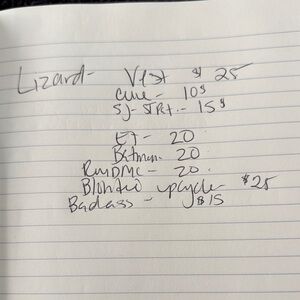 Lizard- Vest $ 25
- 10$
SJ- - 15$
ET - 20
Batman. 20
RunDMC - 20
Blondie upcycle $25
Badass - $15